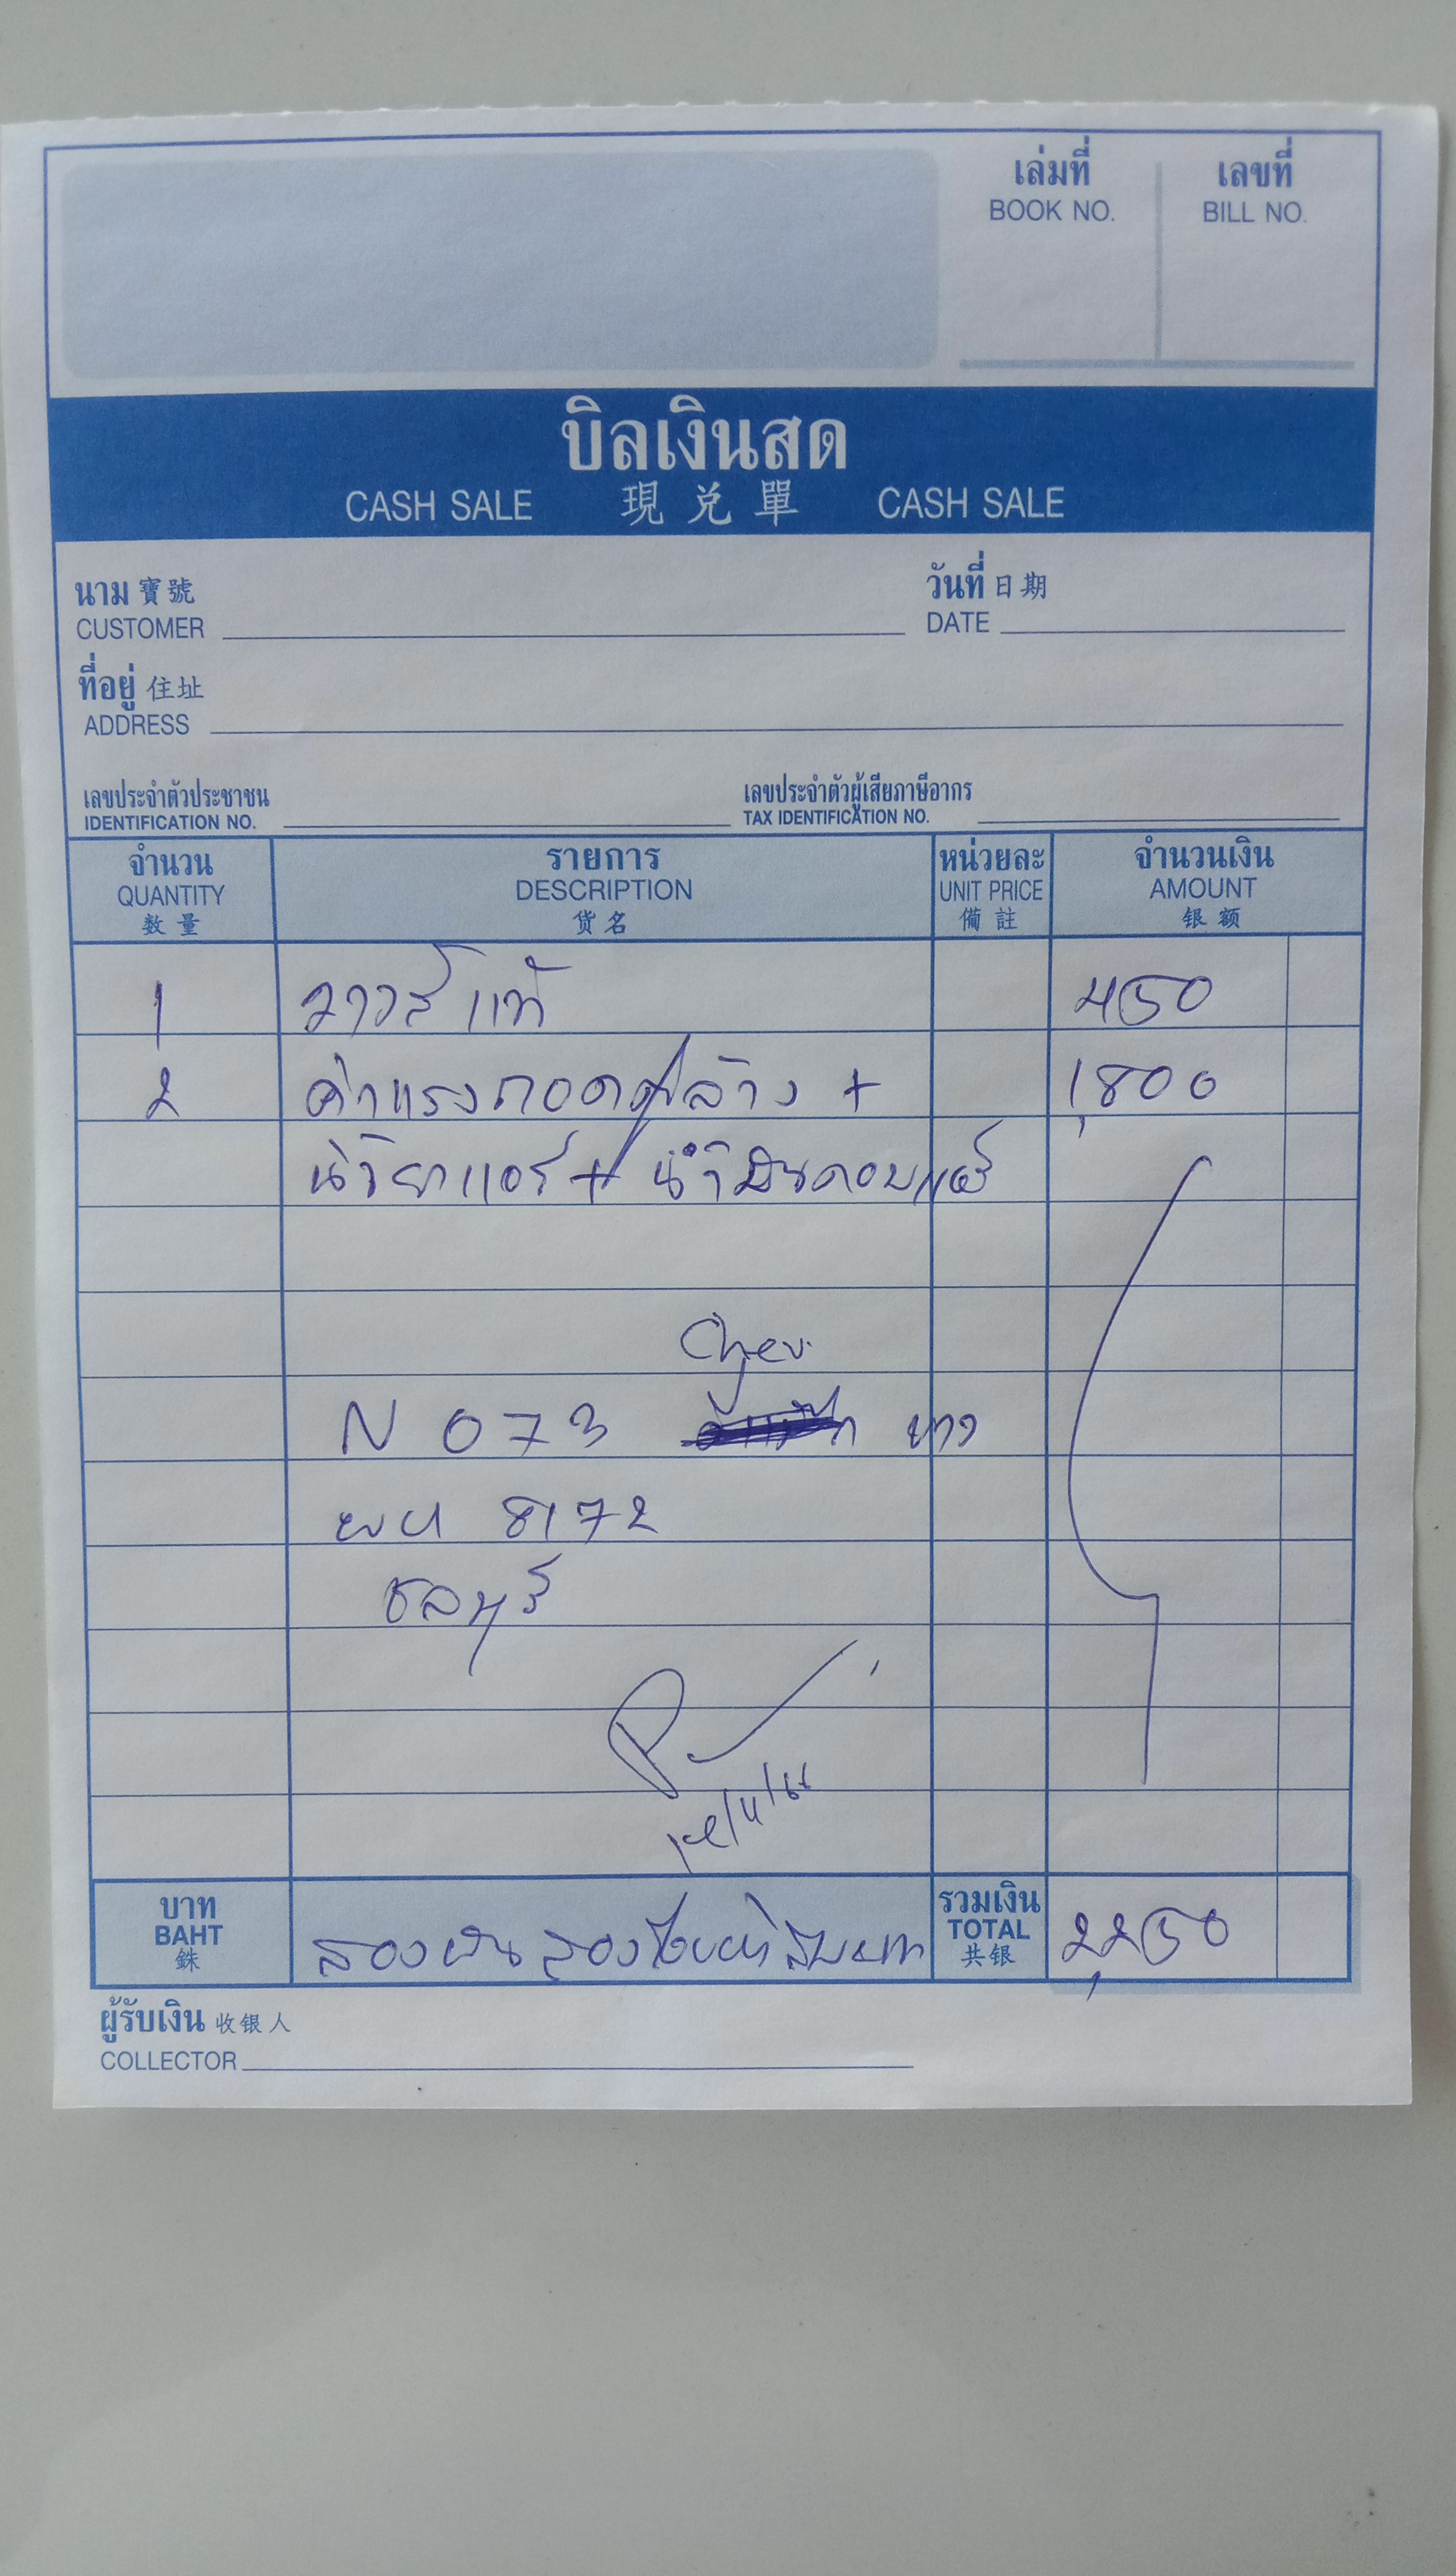 เล่มที่ เลขที่
BOOK NO. BILL NO.
บิลเงินสด
CASH SALE 現兑單 CASH SALE
นาม 寶號 วันที่ 日期
CUSTOMER DATE
ที่อยู่ 住址
ADDRESS
เลขประจำตัวประชาชน เลขประจำตัวผู้เสียภาษีอากร
IDENTIFICATION NO. TAX IDENTIFICATION NO.
จำนวน รายการ หน่วยละ จำนวนเงิน
QUANTITY DESCRIPTION UNIT PRICE AMOUNT
数量 货名 備註 银额
1 วาวล์แท้ 450
2 ค่าแรงถอดตู้ล้าง + 1,800
น้ำยาแอร์ + น้ำมันคอมแอร์
Chev.
N 073 ขาว
8172
ชลบุรี
บาท รวมเงิน
BAHT สองพันสองร้อยห้าสิบบาท TOTAL 2,250
銖 共银
ผู้รับเงิน 收银人
COLLECTOR